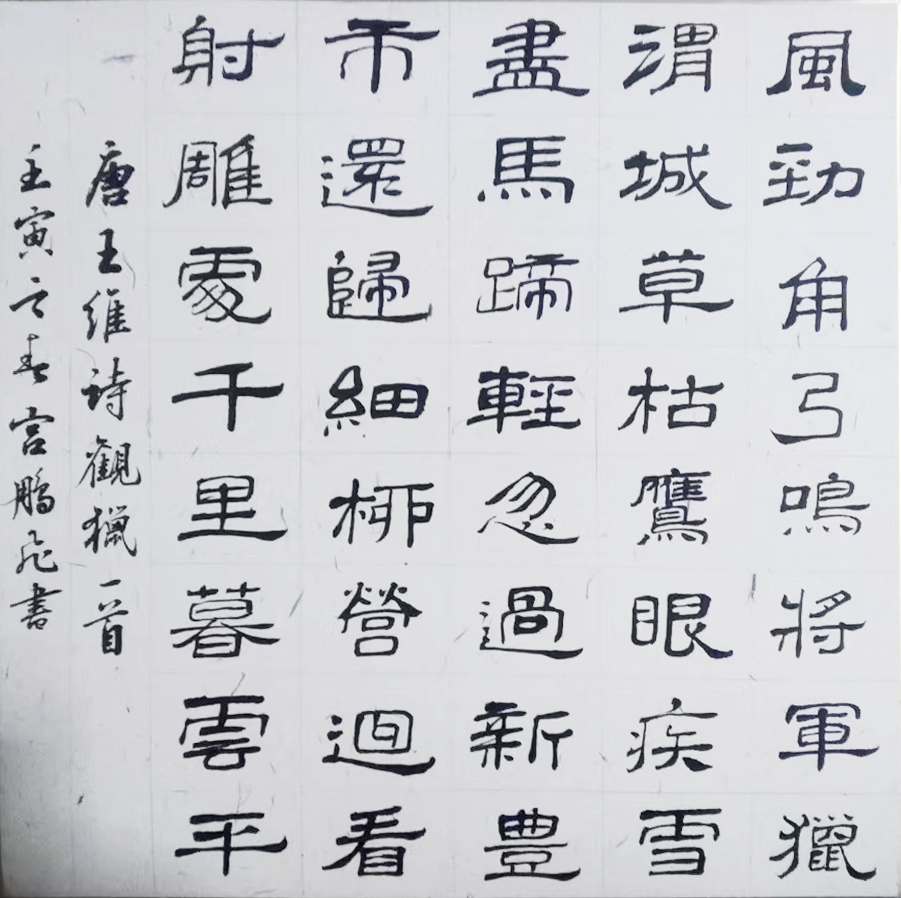 風勁角弓鳴將軍獵
渭城草枯鷹眼疾雪
盡馬蹄輕忽過新豊
市還歸細柳營迴看
射雕處千里暮雲平
唐王維诗觀獵一首
壬寅之春宫鵬飛書